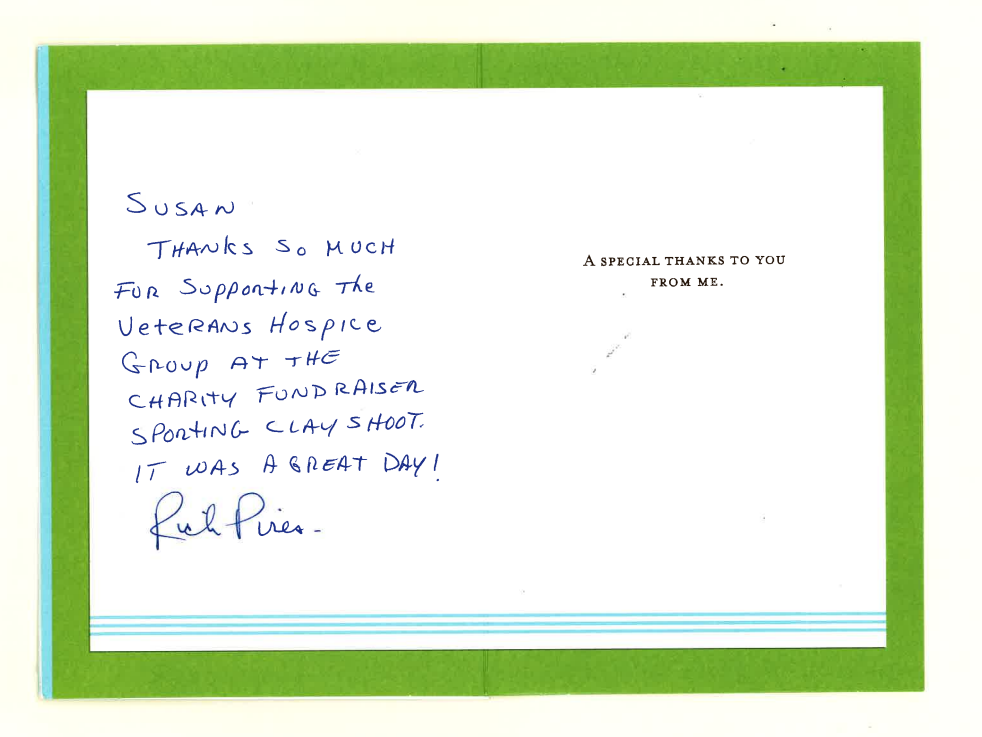 SUSAN
THANKS SO MUCH
FOR SUPPORTING The
VeteRANS HOSPICE
GROUP AT THE
CHARITY FUNDRAISER
SPORTING CLAY SHOOT.
IT WAS A GREAT DAY!
Rich Pires-
A SPECIAL THANKS TO YOU
FROM ME.